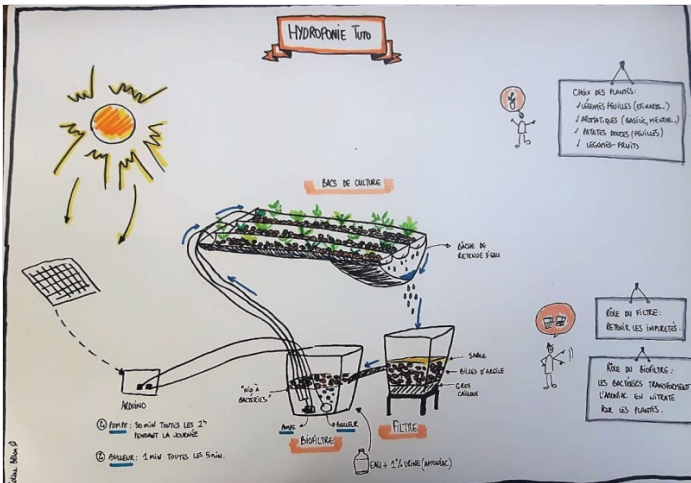 HYDROPONIE TUTO
CHOIX DES PLANTES:
✓ LÉGUMES FEUILLES (EPINARDS...)
✓ AROMATIQUES (BASILIC, MENTHE...)
✓ PATATES DOUCES (FEUILLES)
✓ LEGUMES-FRUITS
BACS DE CULTURE
BÂCHE DE
RETENUE D'EAU
RÔLE DU FILTRE:
RETENIR LES IMPURETÉS.
RÔLE DU BIOFILTRE:
LES BACTÉRIES TRANSFORMENT
L'AMONIAC EN NITRATE
POUR LES PLANTES.
SABLE
BILLES D'ARGILE
GROS
CAILLOUX
"NID À
BACTÉRIES"
ARDUINO
POMPE
BULLEUR
BIOFILTRE
FILTRE
POMPE: 30 MIN TOUTES LES 2H
PENDANT LA JOURNÉE
BULLEUR: 1 MIN TOUTES LES 5 MIN.
EAU + 1% URINE (AMONIAC)